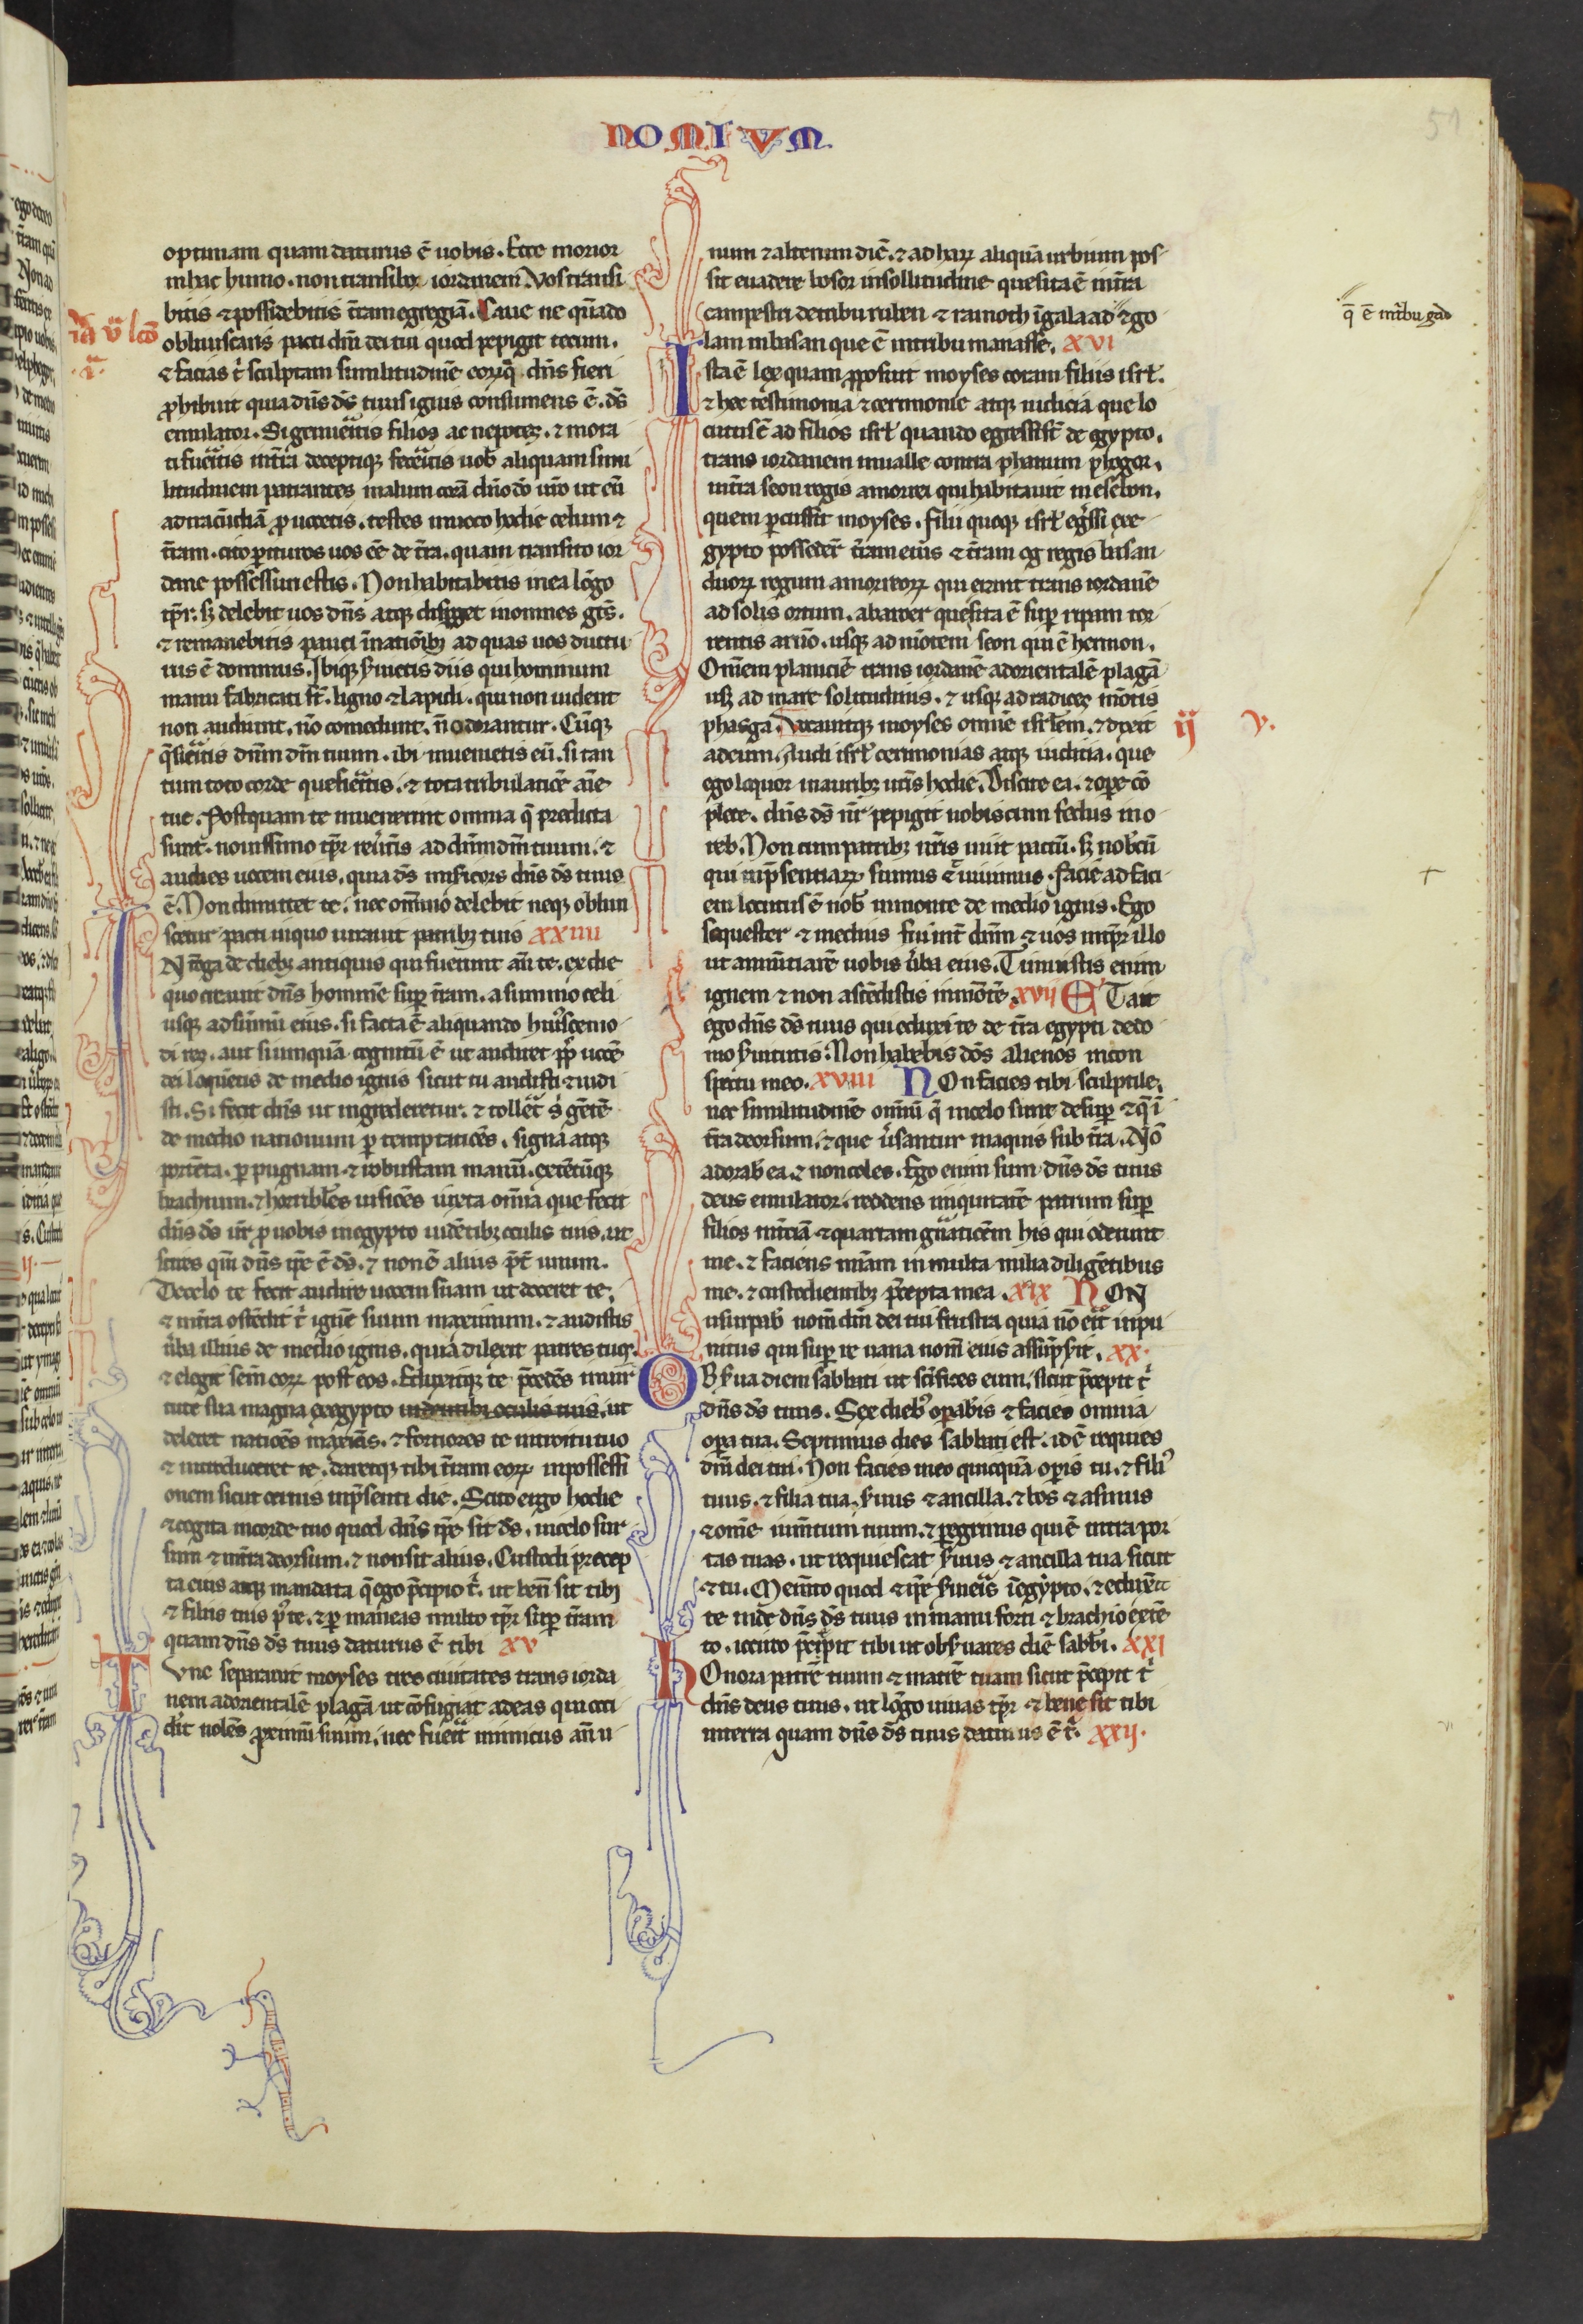 NOMIVM.
51
optimam quam daturus ē uobis. Ecce morior
in hac humo. non transibo iordanem. Vos transi
bitis ⁊ possidebitis t̄ram egregiā. Caue ne q̄ndo
obliuiscaris pacti dn̄i dei tui quod pepigit tecum.
⁊ facias t̍ sculptam similitudinē eorū q̄ dn̄s fieri
ꝓhibuit quia dn̄s ds̄ tuus ignis consumens ē. ds̄
emulator. Si genueritis filios ac nepotes. ⁊ mora
ti fueritis in t̄ra deceptiqꝫ feceritis uob̄ aliquam simi
litudinem patrantes malum corā dn̄o dō ur̄o ut eū
ad iracūdiā ꝓuocetis. testes inuoco hodie celum ⁊
t̄ram. cito ꝑituros uos eē de t̄ra. quam transito ior
dane possessuri estis. Non habitabitis in ea lōgo
tp̄r. sꝫ delebit uos dn̄s atqꝫ disꝑget in omnes gt̄s.
⁊ remanebitis pauci ī nationibꝫ ad quas uos ductu
rus ē dominus. Ibiqꝫ seruietis diis qui hominum
manu fabricati st̄. ligno ⁊ lapidi. qui non uident
non audiunt. nō comedunt. n̄ odorantur. Cūqꝫ
q̄sieritis dn̄m dm̄ tuum. ibi inuenietis eū. si tan
tum toto corde quesieritis. ⁊ tota tribulatiōe aīe
tue. Postquam te inuenerint omnia q̄ predicta
sunt. nouissimo tp̄r reu̍t̍is ad dn̄m dm̄ tuum. ⁊
audies uocem eius. quia ds̄ misicors dn̄s ds̄ tuus
ē. Non dimittet te. nec omnino delebit neqꝫ obliui
scetur pacti in quo iurauit patribꝫ tuis xxiiii
INt̄roga de diebꝫ antiquis qui fuerunt an̄ te. ex die
quo creauit dn̄s hominē suꝑ t̄ram. a summo celi
usqꝫ ad sūmū eius. si facta ē aliquando hui̍scemo
di res. aut si umquā cognitū ē ut audiret pp̄l̄s uocē
dei loquentis de medio ignis sicut tu audisti ⁊ uidi
sti. Si fecit dn̄s ut ingrederetur. ⁊ tolleret s̍ gētē
de medio nationum ꝑ temptatiōes. signa atqꝫ
portēta. ꝑ pugnam ⁊ robustam manū. extētūqꝫ
brachium. ⁊ horribiles uisiōes iuxta omnia que fecit
dn̄s ds̄ ur̄ ꝓ uobis in egypto uidētibꝫ oculis tuis. ut
scires qm̄ dn̄s ip̄e ē ds̄. ⁊ non ē alius pt̄ unum.
De celo te fecit audire uocem suam ut doceret te.
⁊ in t̄ra ostēdit t̍ ignē suum maximum. ⁊ audistis
ūba illius de medio ignis. quia dilexit patres tuos.
⁊ elegit sem̄ eoꝝ post eos. Eduxitqꝫ te p̄cedēs in uir
tute sua magna ex egypto uidentibꝫ oculis tuis. ut
deleret natiōes maximas. ⁊ fortiores te in introitu tuo
⁊ introduceret te. daretqꝫ tibi t̄ram eoꝝ in possessi
onem sicut cernis in p̄senti die. Scito ergo hodie
⁊ cogita in corde tuo quod dn̄s ip̄e sit ds̄. in celo sur
sum ⁊ in t̄ra deorsum. ⁊ non sit alius. Custodi precep
ta eius atqꝫ mandata q̄ ego p̄cipio t̍. ut bene sit tibi
⁊ filiis tuis p̍ te. ⁊ ꝑmaneas multo tp̄r suꝑ t̄ram
quam dn̄s ds̄ tuus daturus ē tibi xv
TVnc separauit moyses tres ciuitates trans iorda
nem ad orientalē plagā ut cōfugiat ad eas qui occi
dit nolēs ꝓximū suum. nec fuerit inimicus an̄ u
num ⁊ alterum diē. ⁊ ad haꝝ aliquā urbium pos
sit euadere bosor in sollitudine que sita ē in t̄ra
campestri de tribu ruben ⁊ ramoth ī galaad ⁊ go
lam in basan que ē in tribu manasse. xvi
Ista ē lex quam ꝓposuit moyses coram filiis isrl̄.
⁊ hec testimonia ⁊ cerimonie atqꝫ iudicia que lo
cutus ē ad filios isrl̄ quando egressi st̄ de egypto.
trans iordanem in ualle contra phanum phogor.
in t̄ra seon regis amorrei qui habitauit in esebon.
quem ꝑcussit moyses. filii quoqꝫ isrl̄ eg̍ssi ex e
gypto possederunt t̄ram eius ⁊ t̄ram og regis basan
duoꝝ regum amorreoꝝ qui erant trans iordanē
ad solis ortum. ab aroer que sita ē suꝑ ripam tor
rentis arnō. usqꝫ ad mōtem seon qui ē hermon.
Omnem planiciē trans iordanē ad orientalē plagā
usqꝫ ad mare solitudinis. ⁊ usqꝫ ad radices mōtis
phasga. Vocauitqꝫ moyses omnē isrl̄em. ⁊ dixit
ad eum. Audi isrl̄ cerimonias atqꝫ iudicia. que
ego loquor in auribꝫ ur̄is hodie. Discite ea. ⁊ oꝑe cō
plete. dn̄s ds̄ nr̄ pepigit uobiscum fedus in o
reb. Non cum patribꝫ nr̄is iniit pactū. sꝫ nob̄cū
qui in p̄sentiaꝝ sumus ⁊ uiuimus. facie ad faci
em locutus ē nob̄ in monte de medio ignis. Ego
sequester ⁊ medius fui int̄ dn̄m ⁊ uos in tp̄r illo
ut annūtiarē uobis ūba eius. Timuistis enim
ignem ⁊ non ascēdistis in mōtē. xvii ET ait
ego dn̄s ds̄ tuus qui eduxi te de t̄ra egypti de do
mo seruitutis. Non habebis dōs alienos in con
spectu meo. xviii NOn facies tibi sculptile.
nec similitudinē omniū q̄ in celo sunt desuꝑ ⁊ q̄ ī
t̄ra deorsum. ⁊ que ūsantur in aquis sub t̄ra. Nō
adorab̄ ea. ⁊ non coles. Ego enim sum dn̄s ds̄ tuus
deus emulator. reddens iniquitatē patrum suꝑ
filios in t̄ciā ⁊ quartam gn̄atiōem his qui oderunt
me. ⁊ faciens mīam in multa milia diligētibus
me. ⁊ custodientibꝫ p̄cepta mea. xix NON
usurpab̄ nom̄ dn̄i dei tui frustra quia nō erit inpu
nitus qui suꝑ re uana nom̄ eius assūpserit. xx.
OBserua diem sabbati ut sc̄ifices eum. sicut p̄cepit t̍
dn̄s ds̄ tuus. Sex diebꝫ oꝑab̍is ⁊ facies omnia
oꝑa tua. Septimus dies sabbati est. id ē requies
dn̄i dei tui. Non facies in eo quicquā oꝑis tu. ⁊ fili̍
tuus. ⁊ filia tua. seruus ⁊ ancilla. ⁊ bos ⁊ asinus
⁊ omē iumtum tuum. ⁊ ꝑegrinus qui ē intra por
tas tuas. ut requiescat seruus ⁊ ancilla tua sicut
⁊ tu. Memto quod ⁊ ip̄e seruieris ī egypto. ⁊ eduxerit
te inde dn̄s ds̄ tuus in manu forti ⁊ brachio extē
to. iccirco p̄cepit tibi ut obseruares diē sabb̄i. XXI
HOnora patrē tuum ⁊ matrē tuam sicut p̄cepit t̍
dn̄s deus tuus. ut lōgo uiuas tp̄r ⁊ bene sit tibi
in terra quam dn̄s ds̄ tuus daturus ē t̍. xxij.
ij v.
q̄ ē in t̍bu gad